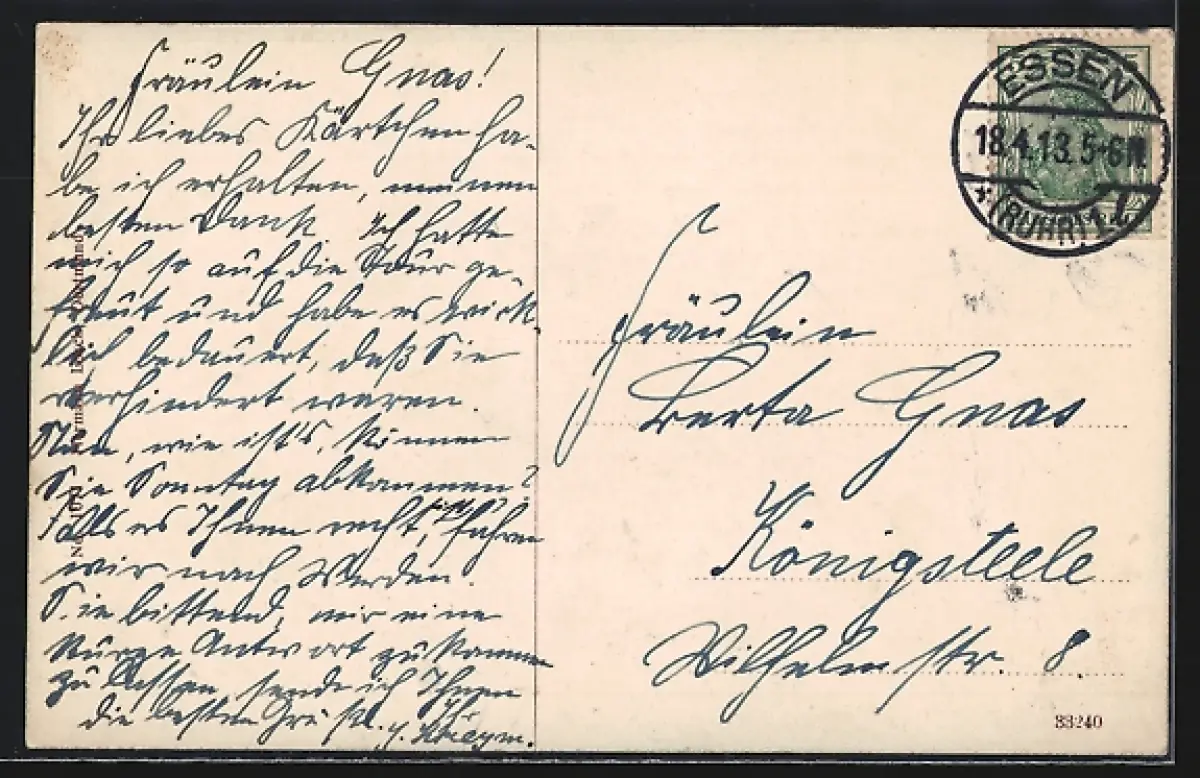 Fräulein Gnas!
Ihr liebes Kärtchen ha-
be ich erhalten, meinen
besten Dank. Ich hatte
mich so auf die Tour ge-
freut und habe es wirk-
lich bedauert, daß Sie
verhindert waren.
Nun, wie ist's, können
Sie Sonntag abkommen?
Falls es Ihnen recht, fahren
wir nach Werden.
Sie bittend, mir eine
kurze Antwort zukommen
zu lassen, sende ich Ihnen
die besten Grüße.
ESSEN
18.4.13. 5-6N.
* (RUHR) 1
Fräulein
Berta Gnas
Königsteele
Wilhelmstr. 8.
33240